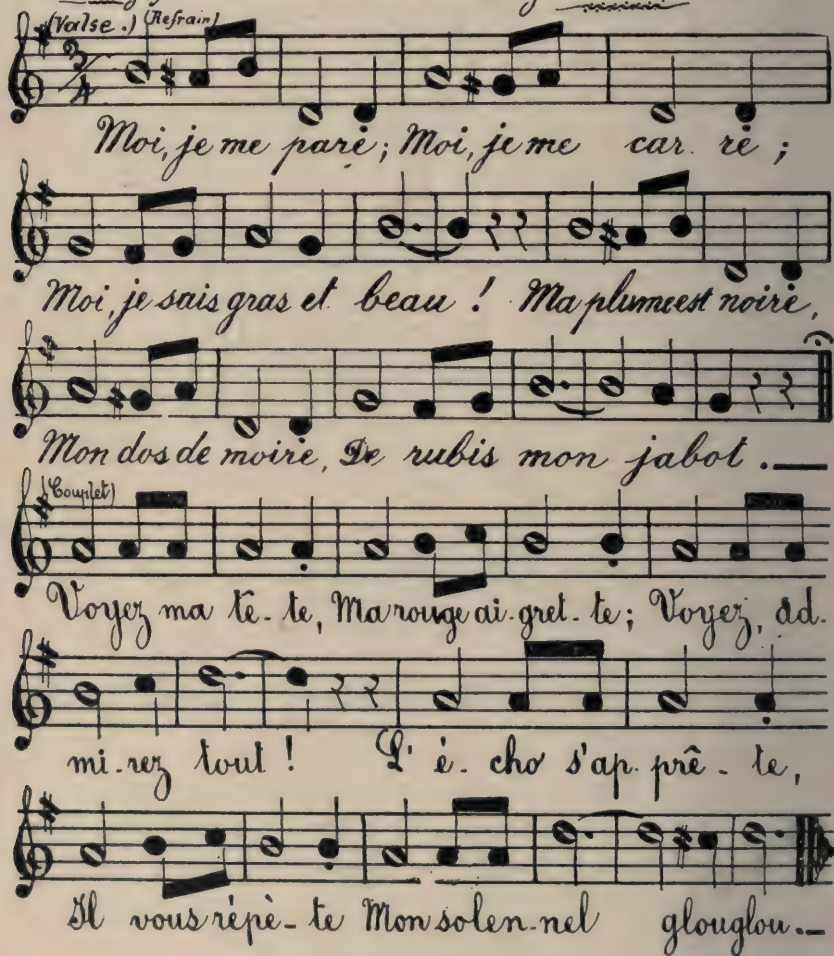 (Valse.) (Refrain)
3/4
Moi, je me parè; Moi, je me car. rè;
Moi, je sais gras et beau! Ma plume est noirè,
Mon dos de moirè, De rubis mon jabot.
(Couplet)
Voyez ma tê-te, Ma rouge ai-gret-te; Voyez, ad-
mi-rez tout! L'é-cho s'ap-prê-te,
Il vous répè-te Mon solen-nel glouglou.